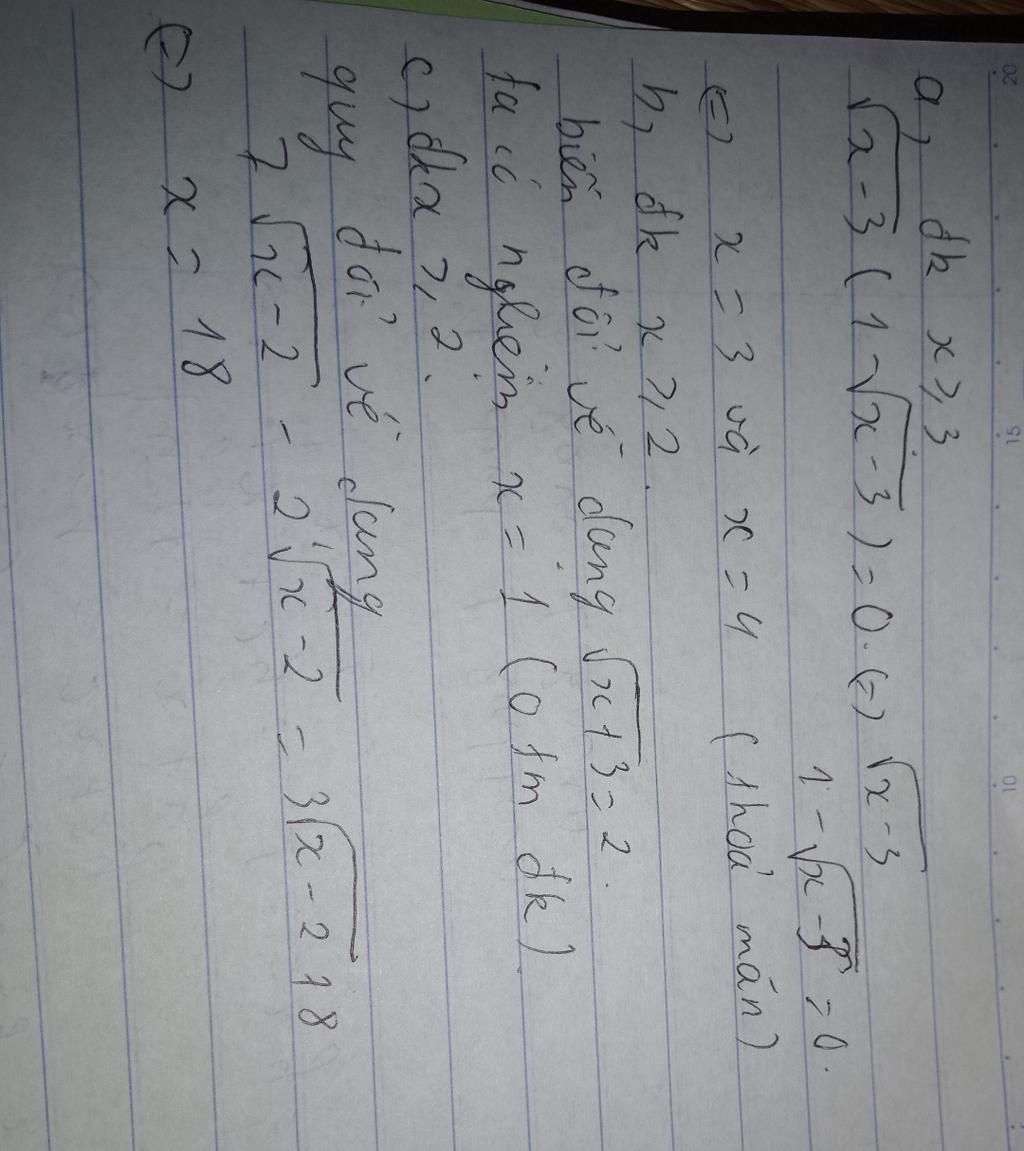 a, đk x ≥ 3
√x-3 ( 1 - √x-3 ) = 0. (=) √x-3
1 - √x-3 = 0.
(=) x = 3 và x = 4 ( thoả mãn )
b, đk x ≥ 2.
biến đổi về dạng √x+3 = 2.
ta có nghiệm x = 1 ( 0 tm đk )
c, đk x ≥ 2.
quy đổi về dạng
7√x-2 - 2√x-2 = 3√x-2 + 8
(=) x = 18
20
15
10